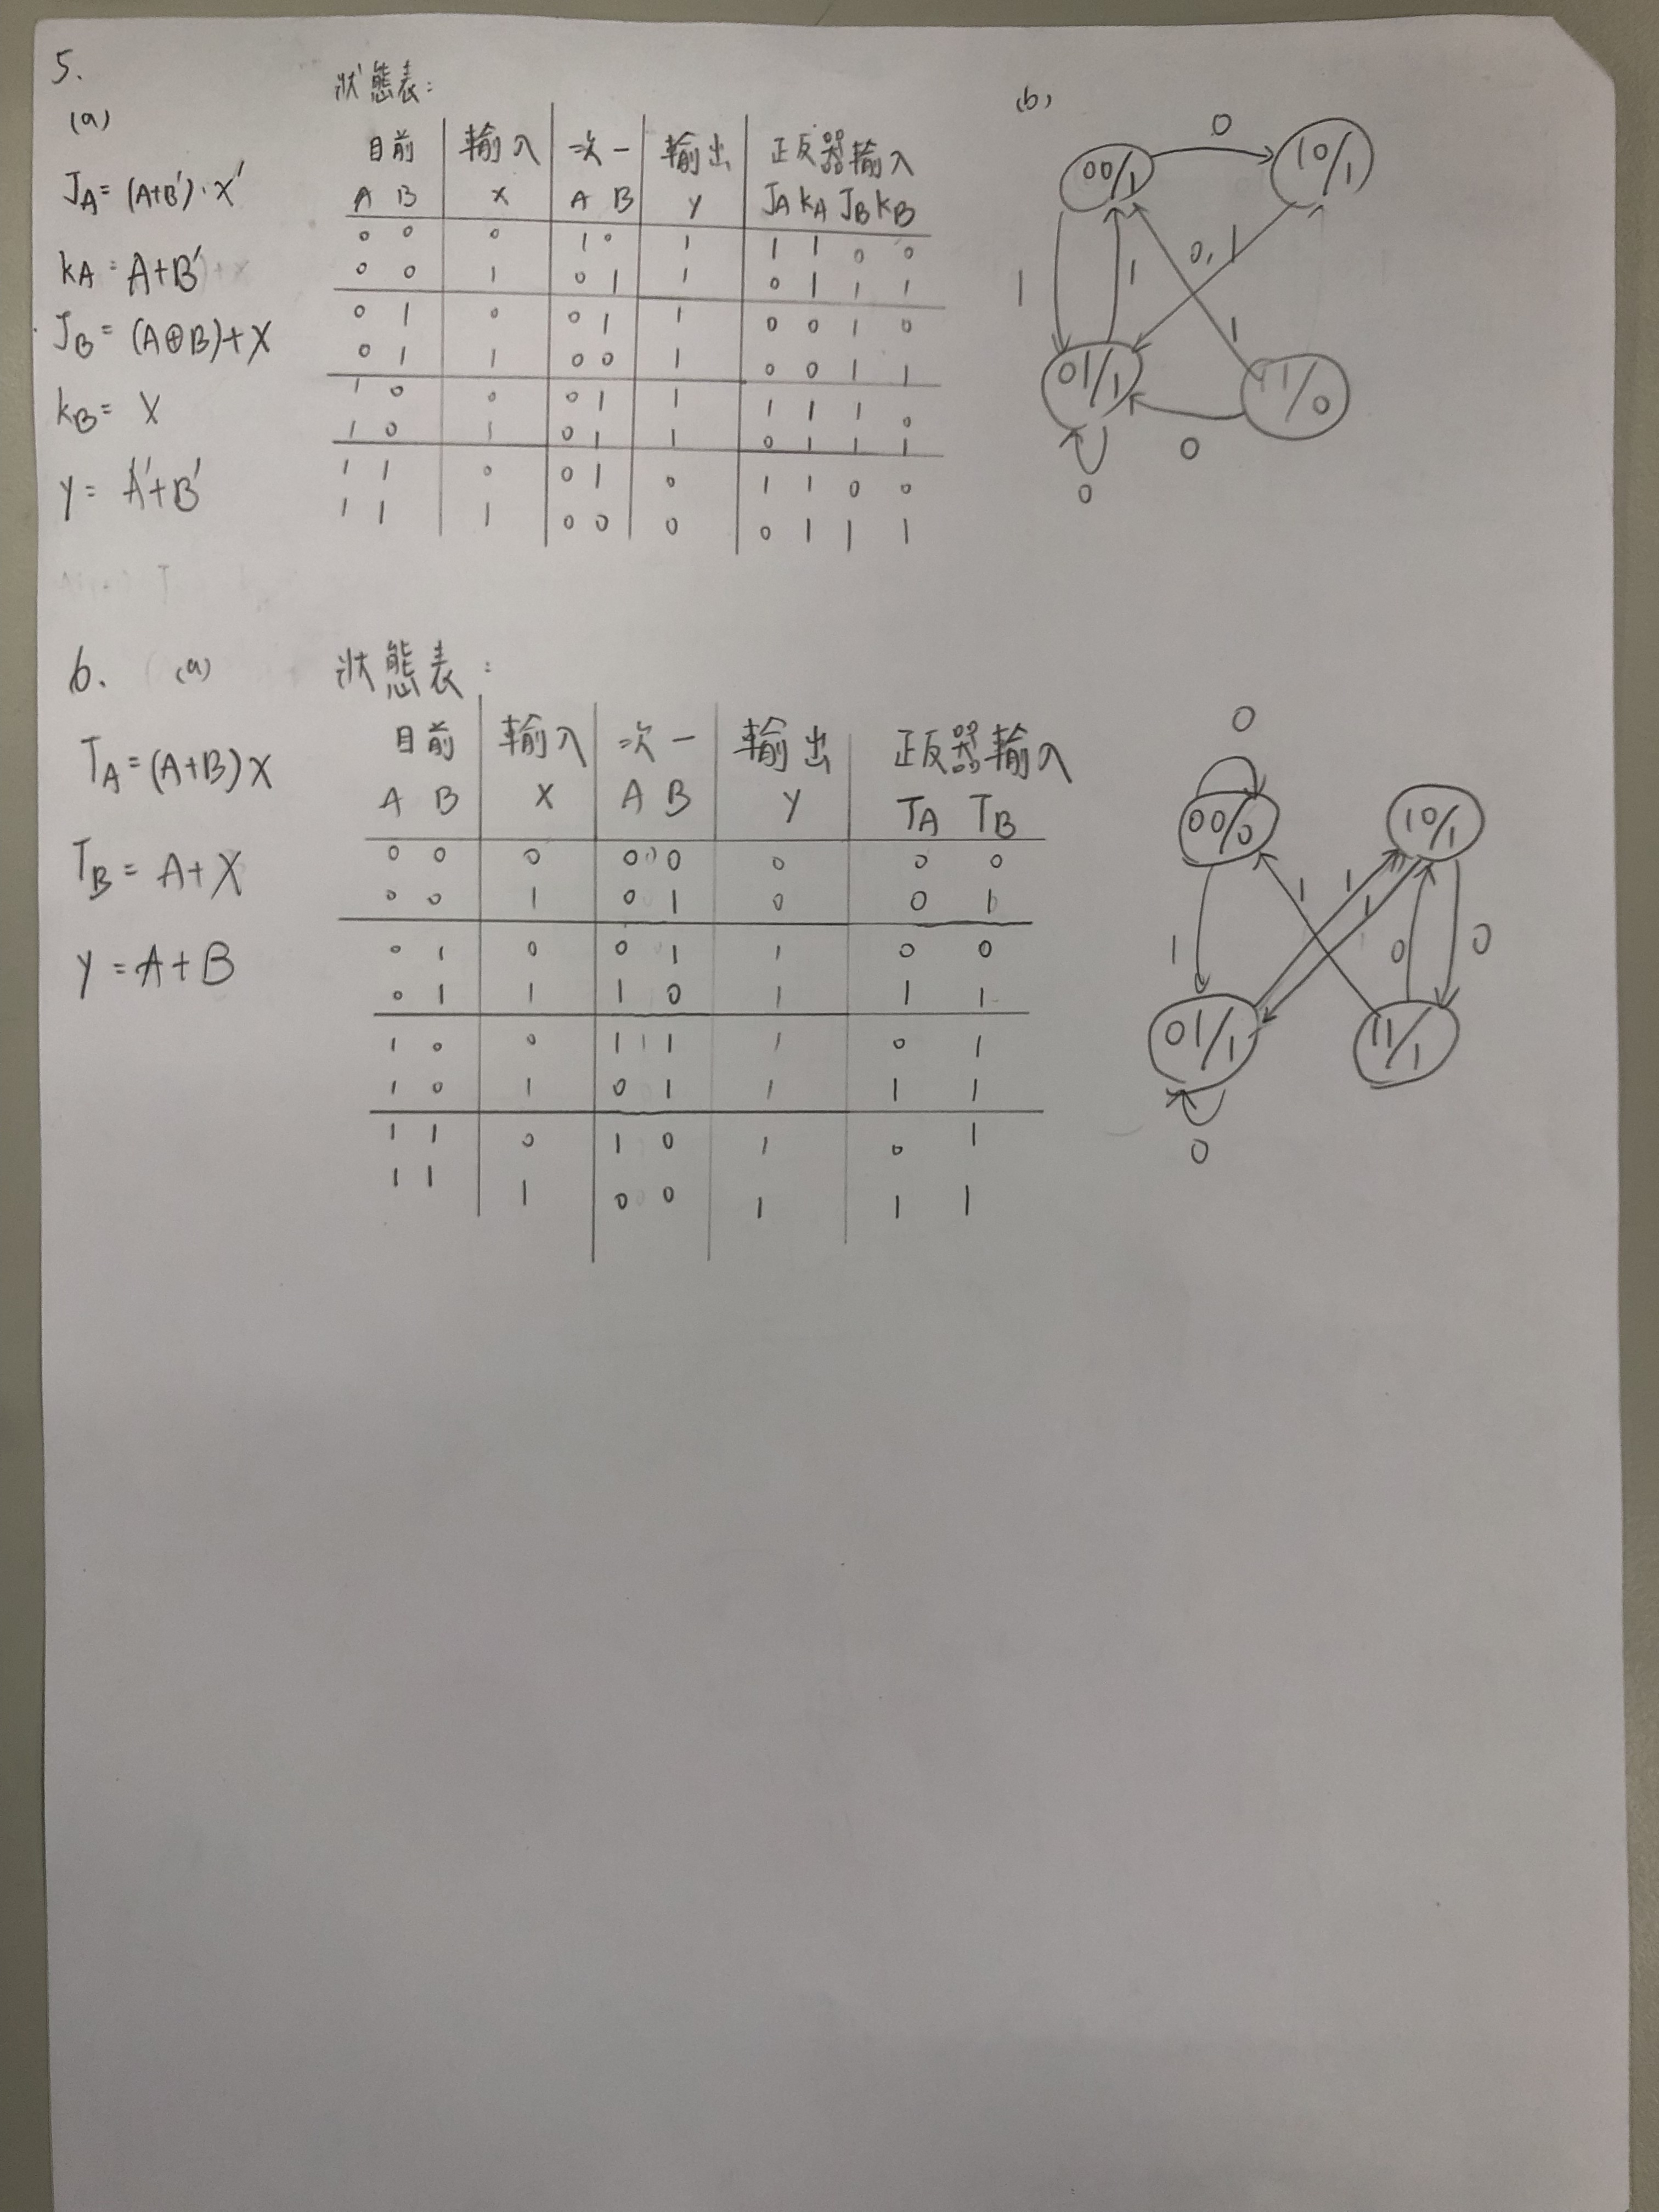 5.
(a)
JA = (A+B')·x'
kA = A+B'
JB = (A⊕B)+X
kB = X
y = A'+B'
狀態表:
目前 輸入 次一 輸出 正反器輸入
A B x A B y JA kA JB kB
0 0 0 1 0 1 1 1 0 0
0 0 1 0 1 1 0 1 1 1
0 1 0 0 1 1 0 0 1 0
0 1 1 0 0 1 0 0 1 1
1 0 0 0 1 1 1 1 1 0
1 0 1 0 1 1 0 1 1 1
1 1 0 0 1 0 1 1 0 0
1 1 1 0 0 0 0 1 1 1
(b)
0
00/1 10/1
1 1 0, 1 1
01/1 11/0
0
0
6. (a)
TA = (A+B)X
TB = A+X
y = A+B
狀態表:
目前 輸入 次一 輸出 正反器輸入
A B X A B y TA TB
0 0 0 0 0 0 0 0
0 0 1 0 1 0 0 1
0 1 0 0 1 1 0 0
0 1 1 1 0 1 1 1
1 0 0 1 1 1 0 1
1 0 1 0 1 1 1 1
1 1 0 1 0 1 0 1
1 1 1 0 0 1 1 1
0
00/0 10/1
1 1 1 1 0 0
01/1 11/1
0